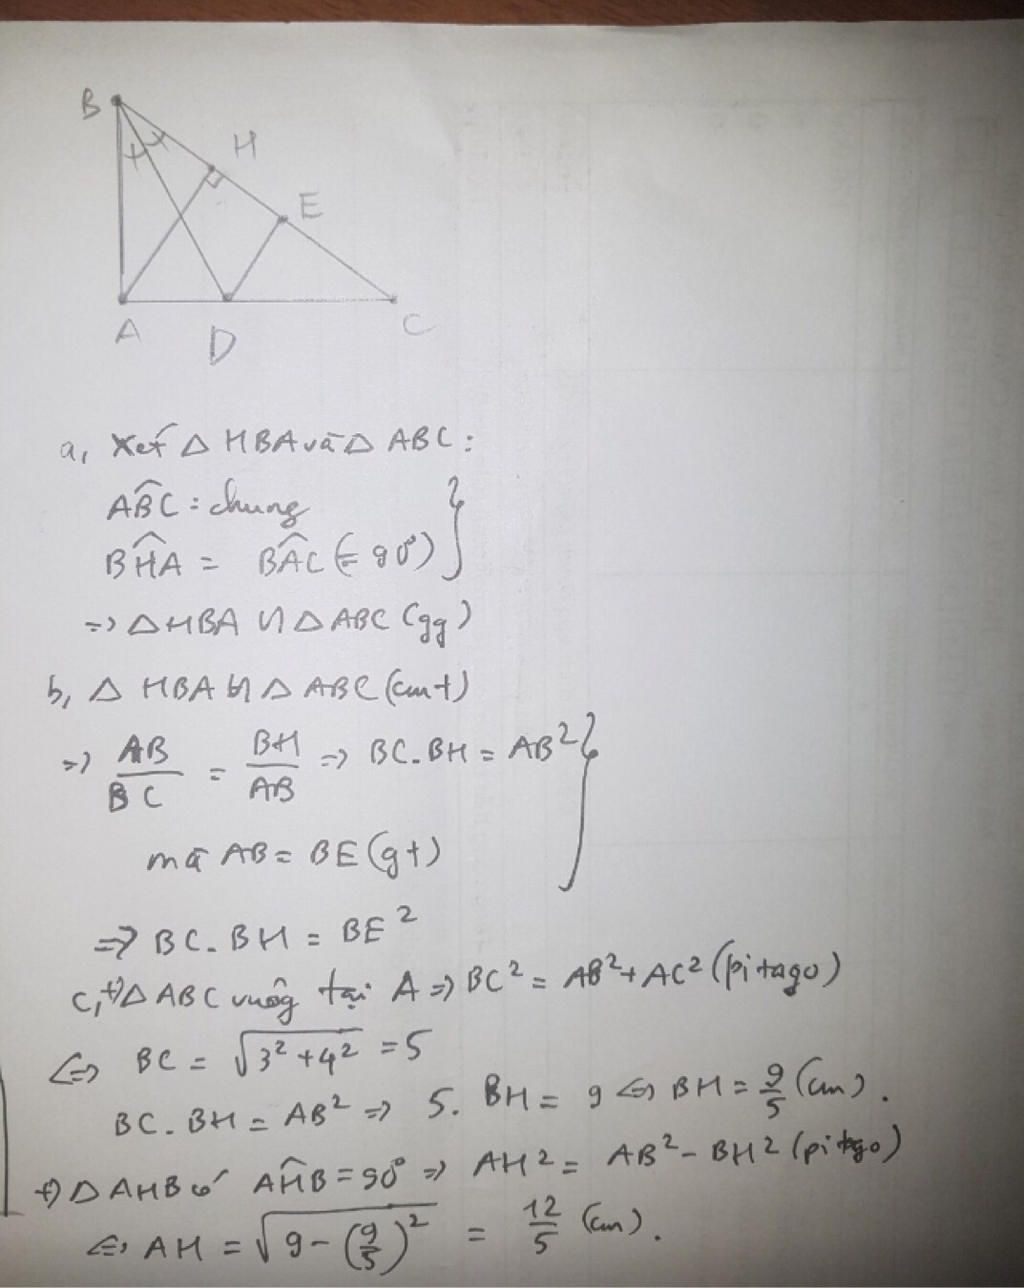 B
H
E
A D C
a, Xét △ HBA và △ ABC :
ABC : chung
BHA = BAC (= 90°)
=> △HBA ∽ △ABC (gg)
b, △ HBA ∽ △ ABC (cmt)
=> AB/BC = BH/AB => BC.BH = AB²
mà AB = BE (gt)
=> BC.BH = BE²
c, +) △ABC vuôg tại A => BC² = AB² + AC² (pitago)
<=> BC = √3²+4² = 5
BC.BH = AB² => 5.BH = 9 <=> BH = 9/5 (cm).
+) △AHB có AHB = 90° => AH² = AB² - BH² (pitago)
<=> AH = √9-(9/5)² = 12/5 (cm).